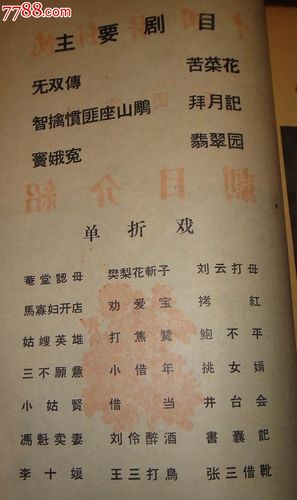 7788.com
主要剧目
旡双傳 苦菜花
智擒慣匪座山鵰 拜月記
竇娥冤 翡翠园
劇目介紹
单折戏
菴堂認母 樊梨花斬子 刘云打母
馬寡妇开店 劝爱宝 拷紅
姑嫂英雄 打焦贊 鮑不平
三不願意 小借年 挑女婿
小姑賢 借当 井台会
馮魁卖妻 刘伶醉酒 書囊記
李十娘 王三打鳥 张三借靴